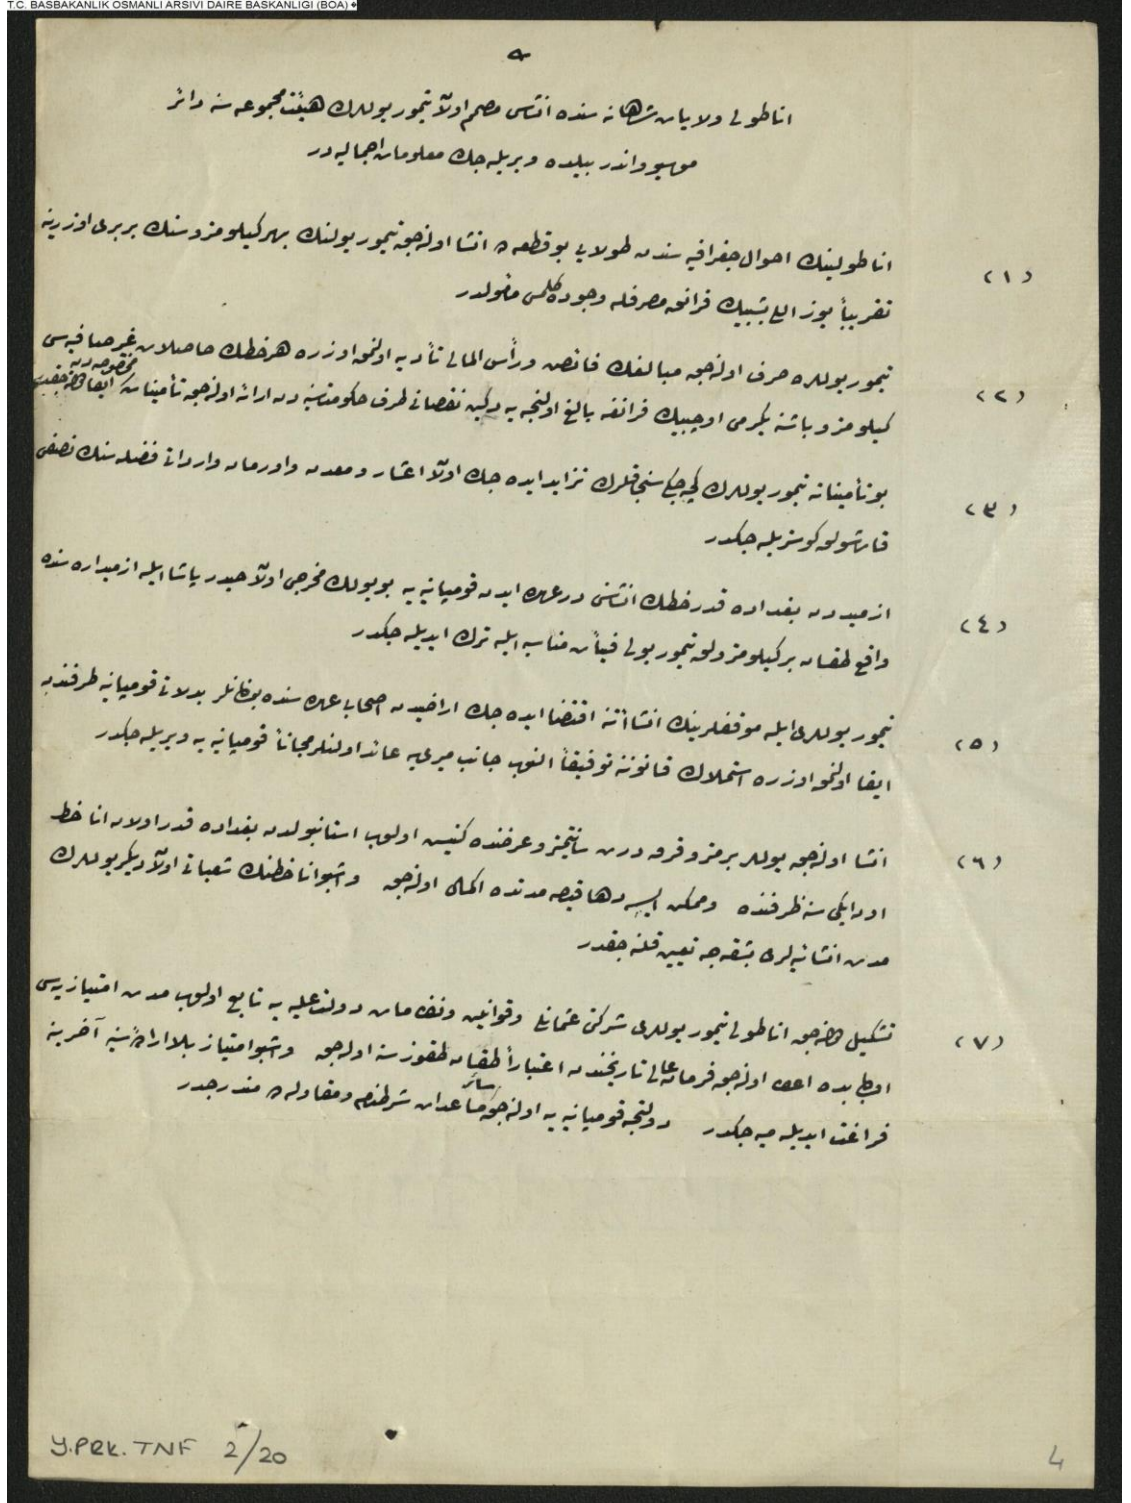 T.C. BASBAKANLIK OSMANLI ARSIVI DAIRE BASKANLIGI (BOA)
اناطولی ولایات شاهانه سنده انشاسی مصمم اولان تیمور یوللرك هیئت مجموعه سنه دائر
موسیو واندر بیلده ویریله جك معلومات اجمالیه در
(١) اناطولینك احوال جغرافیه سندن طولایی بو قطعه ده انشا اولنه جق تیمور یولنك بهر کیلومتروسنك بربری اوزرینه
تقریباً یوز اللی بشبیك فرانق مصرفله وجوده کلمسی مأمولدر
(٢) تیمور یوللره صرف اولنه جق مبالغك فائض ورأس المالی تأدیه اولنمق اوزره هر خطك حاصلات غیر صافیه سی
کیلومترو باشنه یکرمی اوچبیك فرانغه بالغ اولنجه یه دکین نقصانی طرف حکومتدن ارائه اولنه جق تأمینات مخصوصه دن ایفا قلنه جقدر
(٣) بو تأمیناته تیمور یوللرك کچه جکی سنجاقلرك تزاید ایده جك اولان اعشار ومعدن واورمان وارداتی فضله سنك نصفی
قارشولق کوستریله جکدر
(٤) ازمیددن بغداده قدر خطك انشاسنی درعهده ایدن قومپانیه یه بو یولك مخرجی اولان حیدر پاشا ایله ازمید اره سنده
واقع طقسان بر کیلومترولق تیمور یولی فیئات مناسبه ایله ترك ایدیله جکدر
(٥) تیمور یوللری ایله موقفلرینك انشاآتنه اقتضا ایده جك اراضیدن اصحاب عهده سنده بولنانلر بدلاتی قومپانیه طرفندن
ایفا اولنمق اوزره استملاك قانوننه توفیقاً النوب جانب میری یه عائد اولنلر مجاناً قومپانیه یه ویریله جکدر
(٦) انشا اولنه جق یوللر بر مترو قرق درت سانتیمترو عرضنده کنیش اولوب استانبولدن بغداده قدر اولان انا خط
اون ایکی سنه ظرفنده وممکن ایسه دها قیصه مدتده اکمال اولنه جق واشبو انا خطنك شعباتی اولان دیکر یوللرك
مدت انشائیه لری بشقه جه تعیین قلنه جقدر
(٧) تشکیل قلنه جق اناطولی تیمور یوللری شرکتی عثمانلی وقوانین ونظامات دولت علیه یه تابع اولوب مدت امتیازیه سی
اوبابده اعطا اولنه جق فرمان عالی تاریخندن اعتباراً طقسان طقوز سنه اوله جق واشبو امتیاز بلا اراده سنیه آخرینه
فراغت ایدیله میه جکدر دولتجه قومپانیه یه اولنه جق سائر مساعدات شرطنامه ومقاوله ده مندرجدر
Y.PRK.TNF 2/20
4